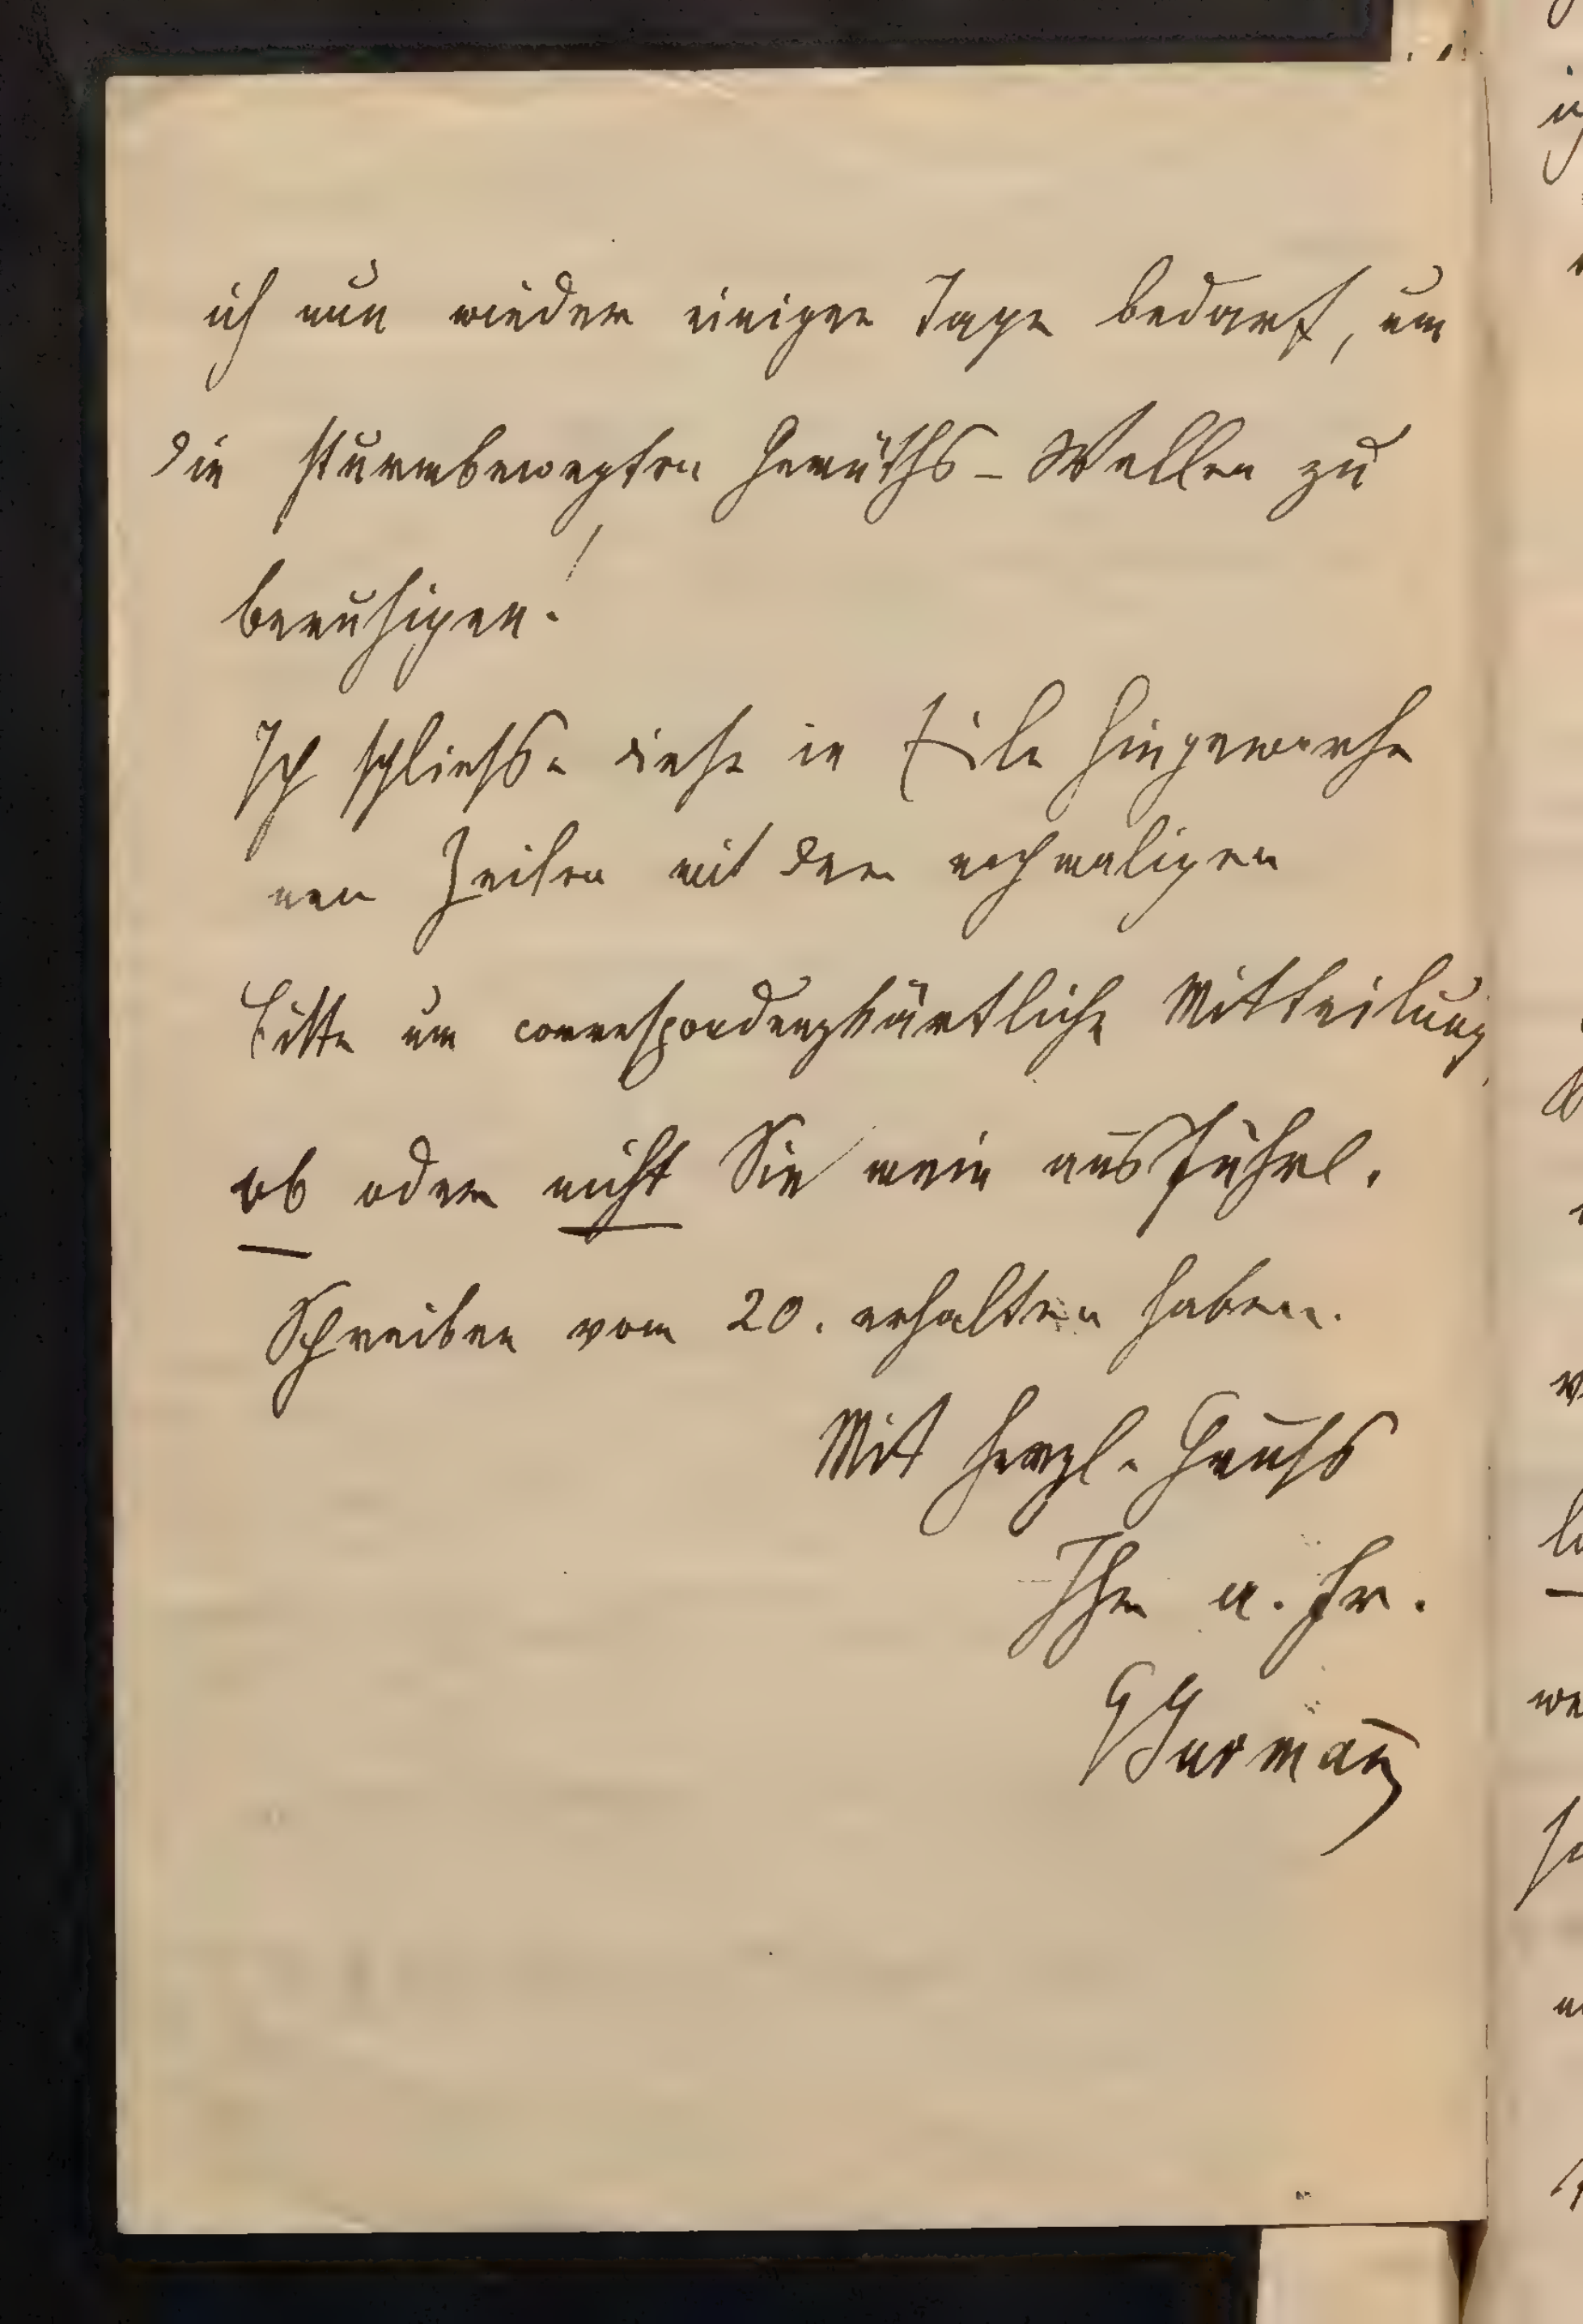 ich nun wieder einiger Tage bedarf, um
die sturmbewegten Gemüths-Wellen zu
beruhigen!
Ich schliesse diese in Eile hingeworfe
nen Zeilen mit der nochmaligen
Bitte um correspondenzkärtliche Mittheilung,
ob oder nicht Sie mein ausführl.
Schreiben vom 20. erhalten haben.
Mit herzl. Gruss
Ihr a. Fr.